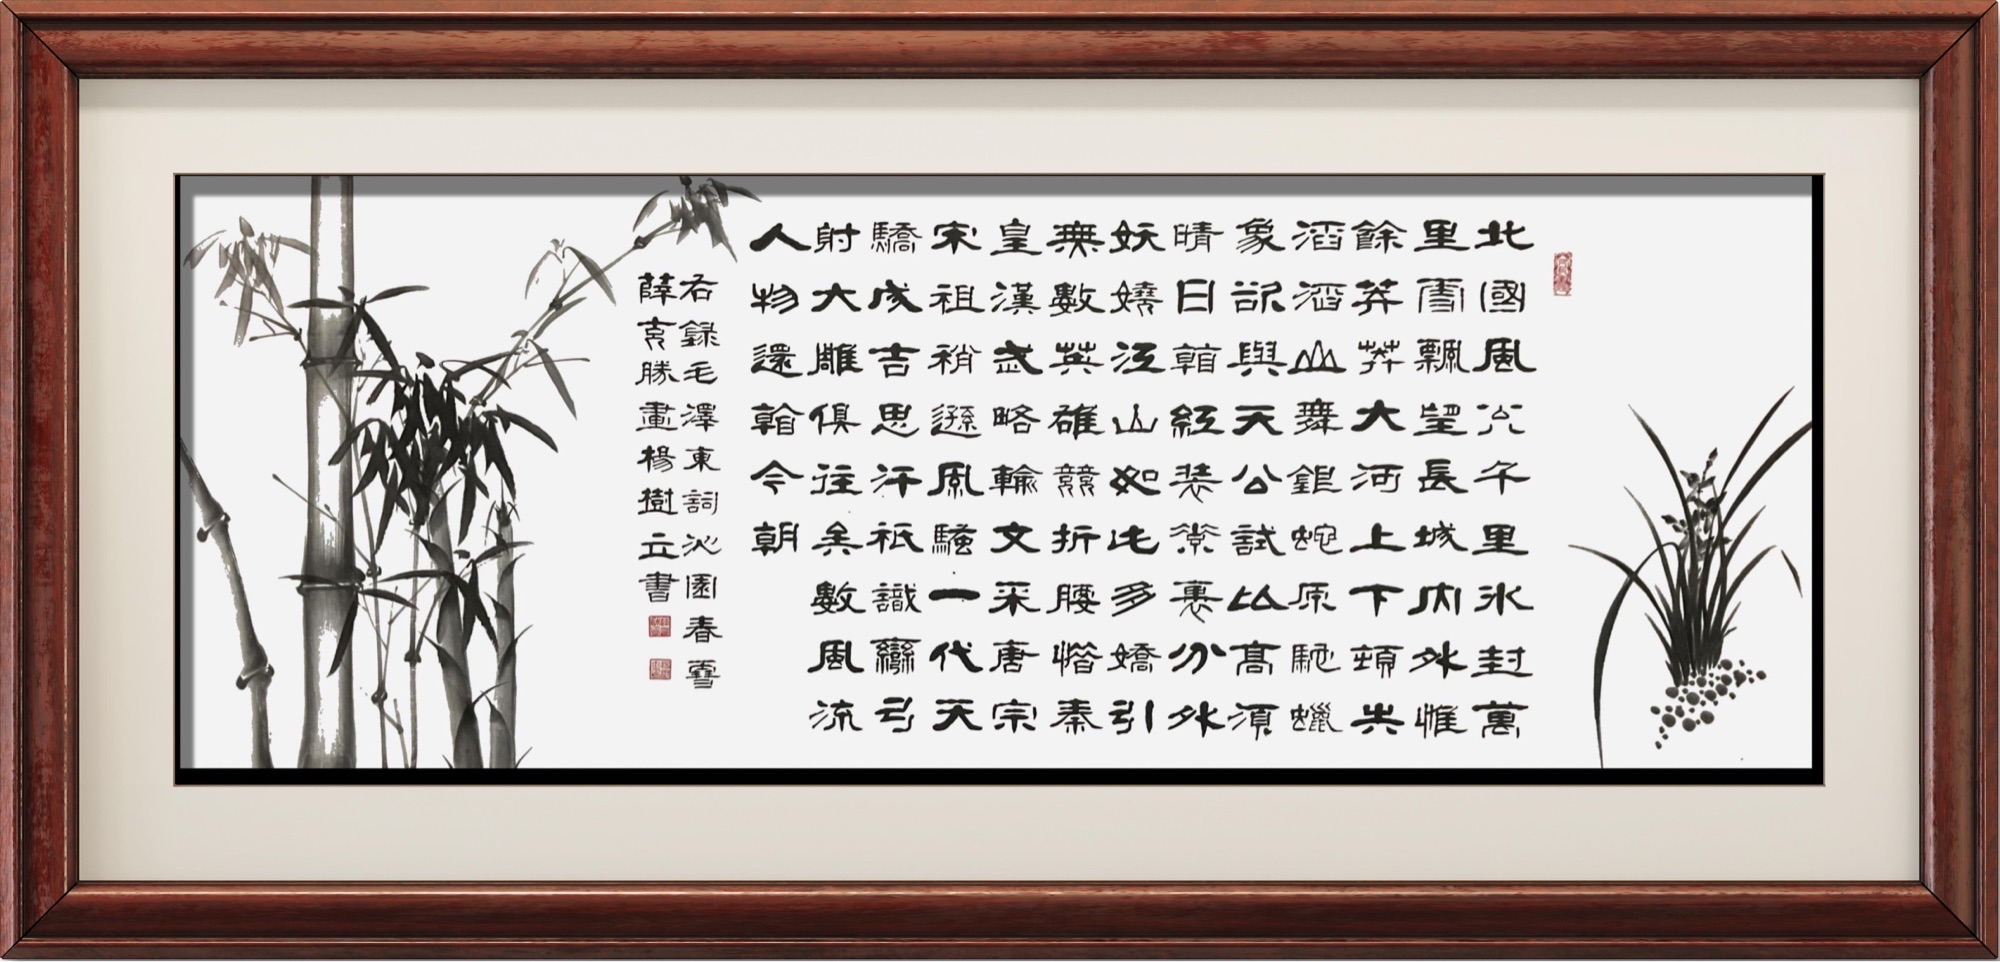 北國風光千里冰封萬
里雪飄望長城內外惟
餘莽莽大河上下頓失
滔滔山舞銀蛇原馳蠟
象欲與天公試比高須
晴日看紅裝素裹分外
妖嬈江山如此多嬌引
無數英雄競折腰惜秦
皇漢武略輸文采唐宗
宋祖稍遜風騷一代天
驕成吉思汗祇識彎弓
射大雕俱往矣數風流
人物還看今朝
右錄毛澤東詞沁園春雪
薛克勝畫楊樹立書